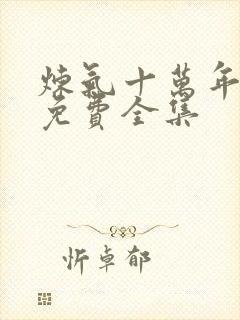 煉氣十萬年
免費全集
忻卓郁